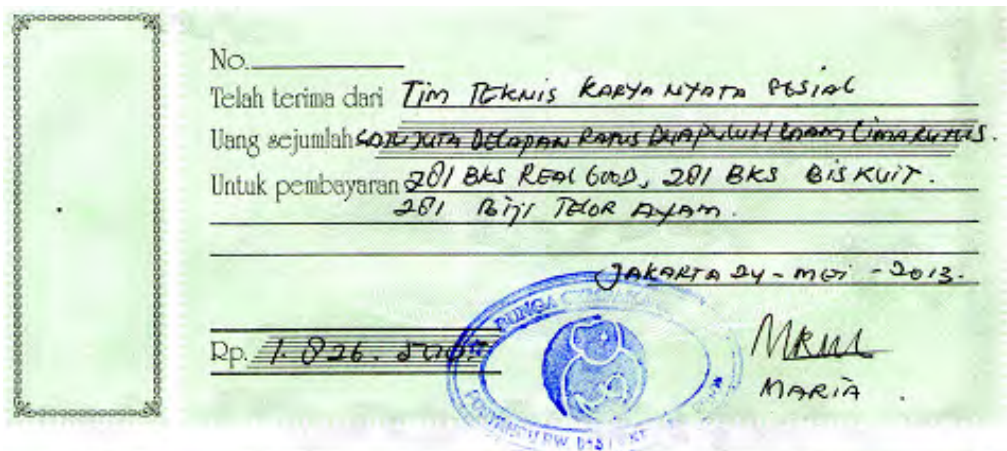 No.
Telah terima dari Tim TEKNIS KARYA NYATA SOSIAL
Uang sejumlah SATU JUTA DELAPAN RATUS DUAPULUH ENAM LIMA RATUS.
Untuk pembayaran 281 BKS REAL GOOD, 281 BKS BISKUIT.
281 BIJI TELOR AYAM.
JAKARTA 24 - MEI - 2013.
BUNGA
Rp. 1.826.500
POSYANDU RW
MARIA.